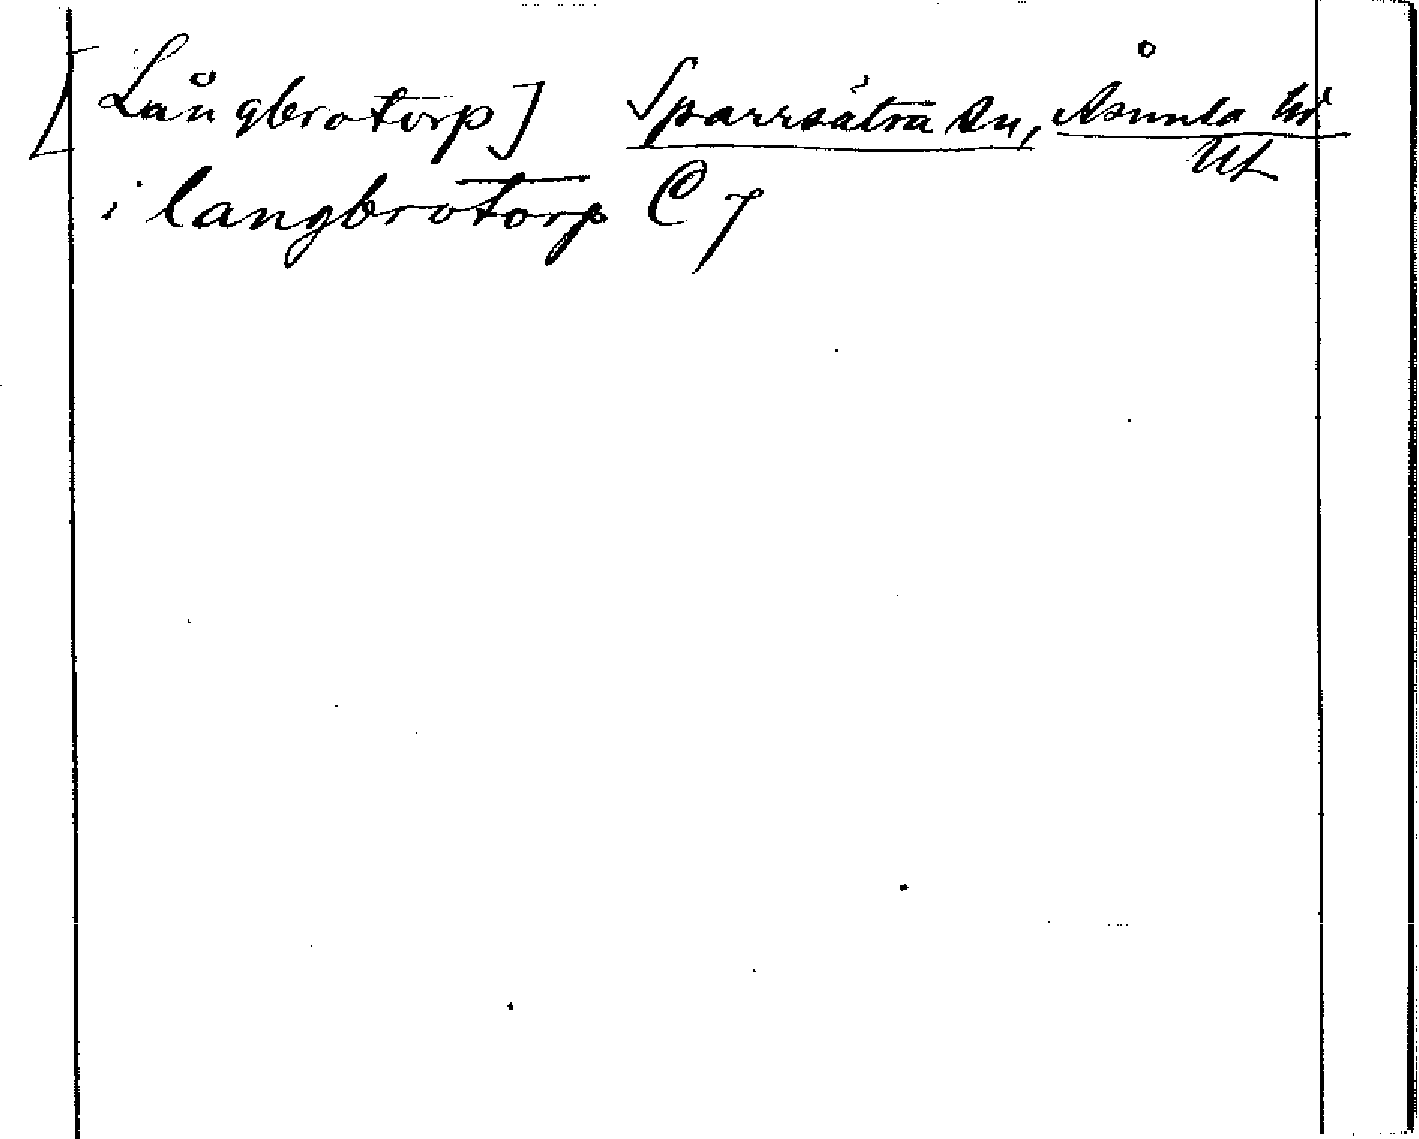 [Långbrotorp] Sparrsätra sn, Åsunda hd
Upl
i langbrotorp C 7